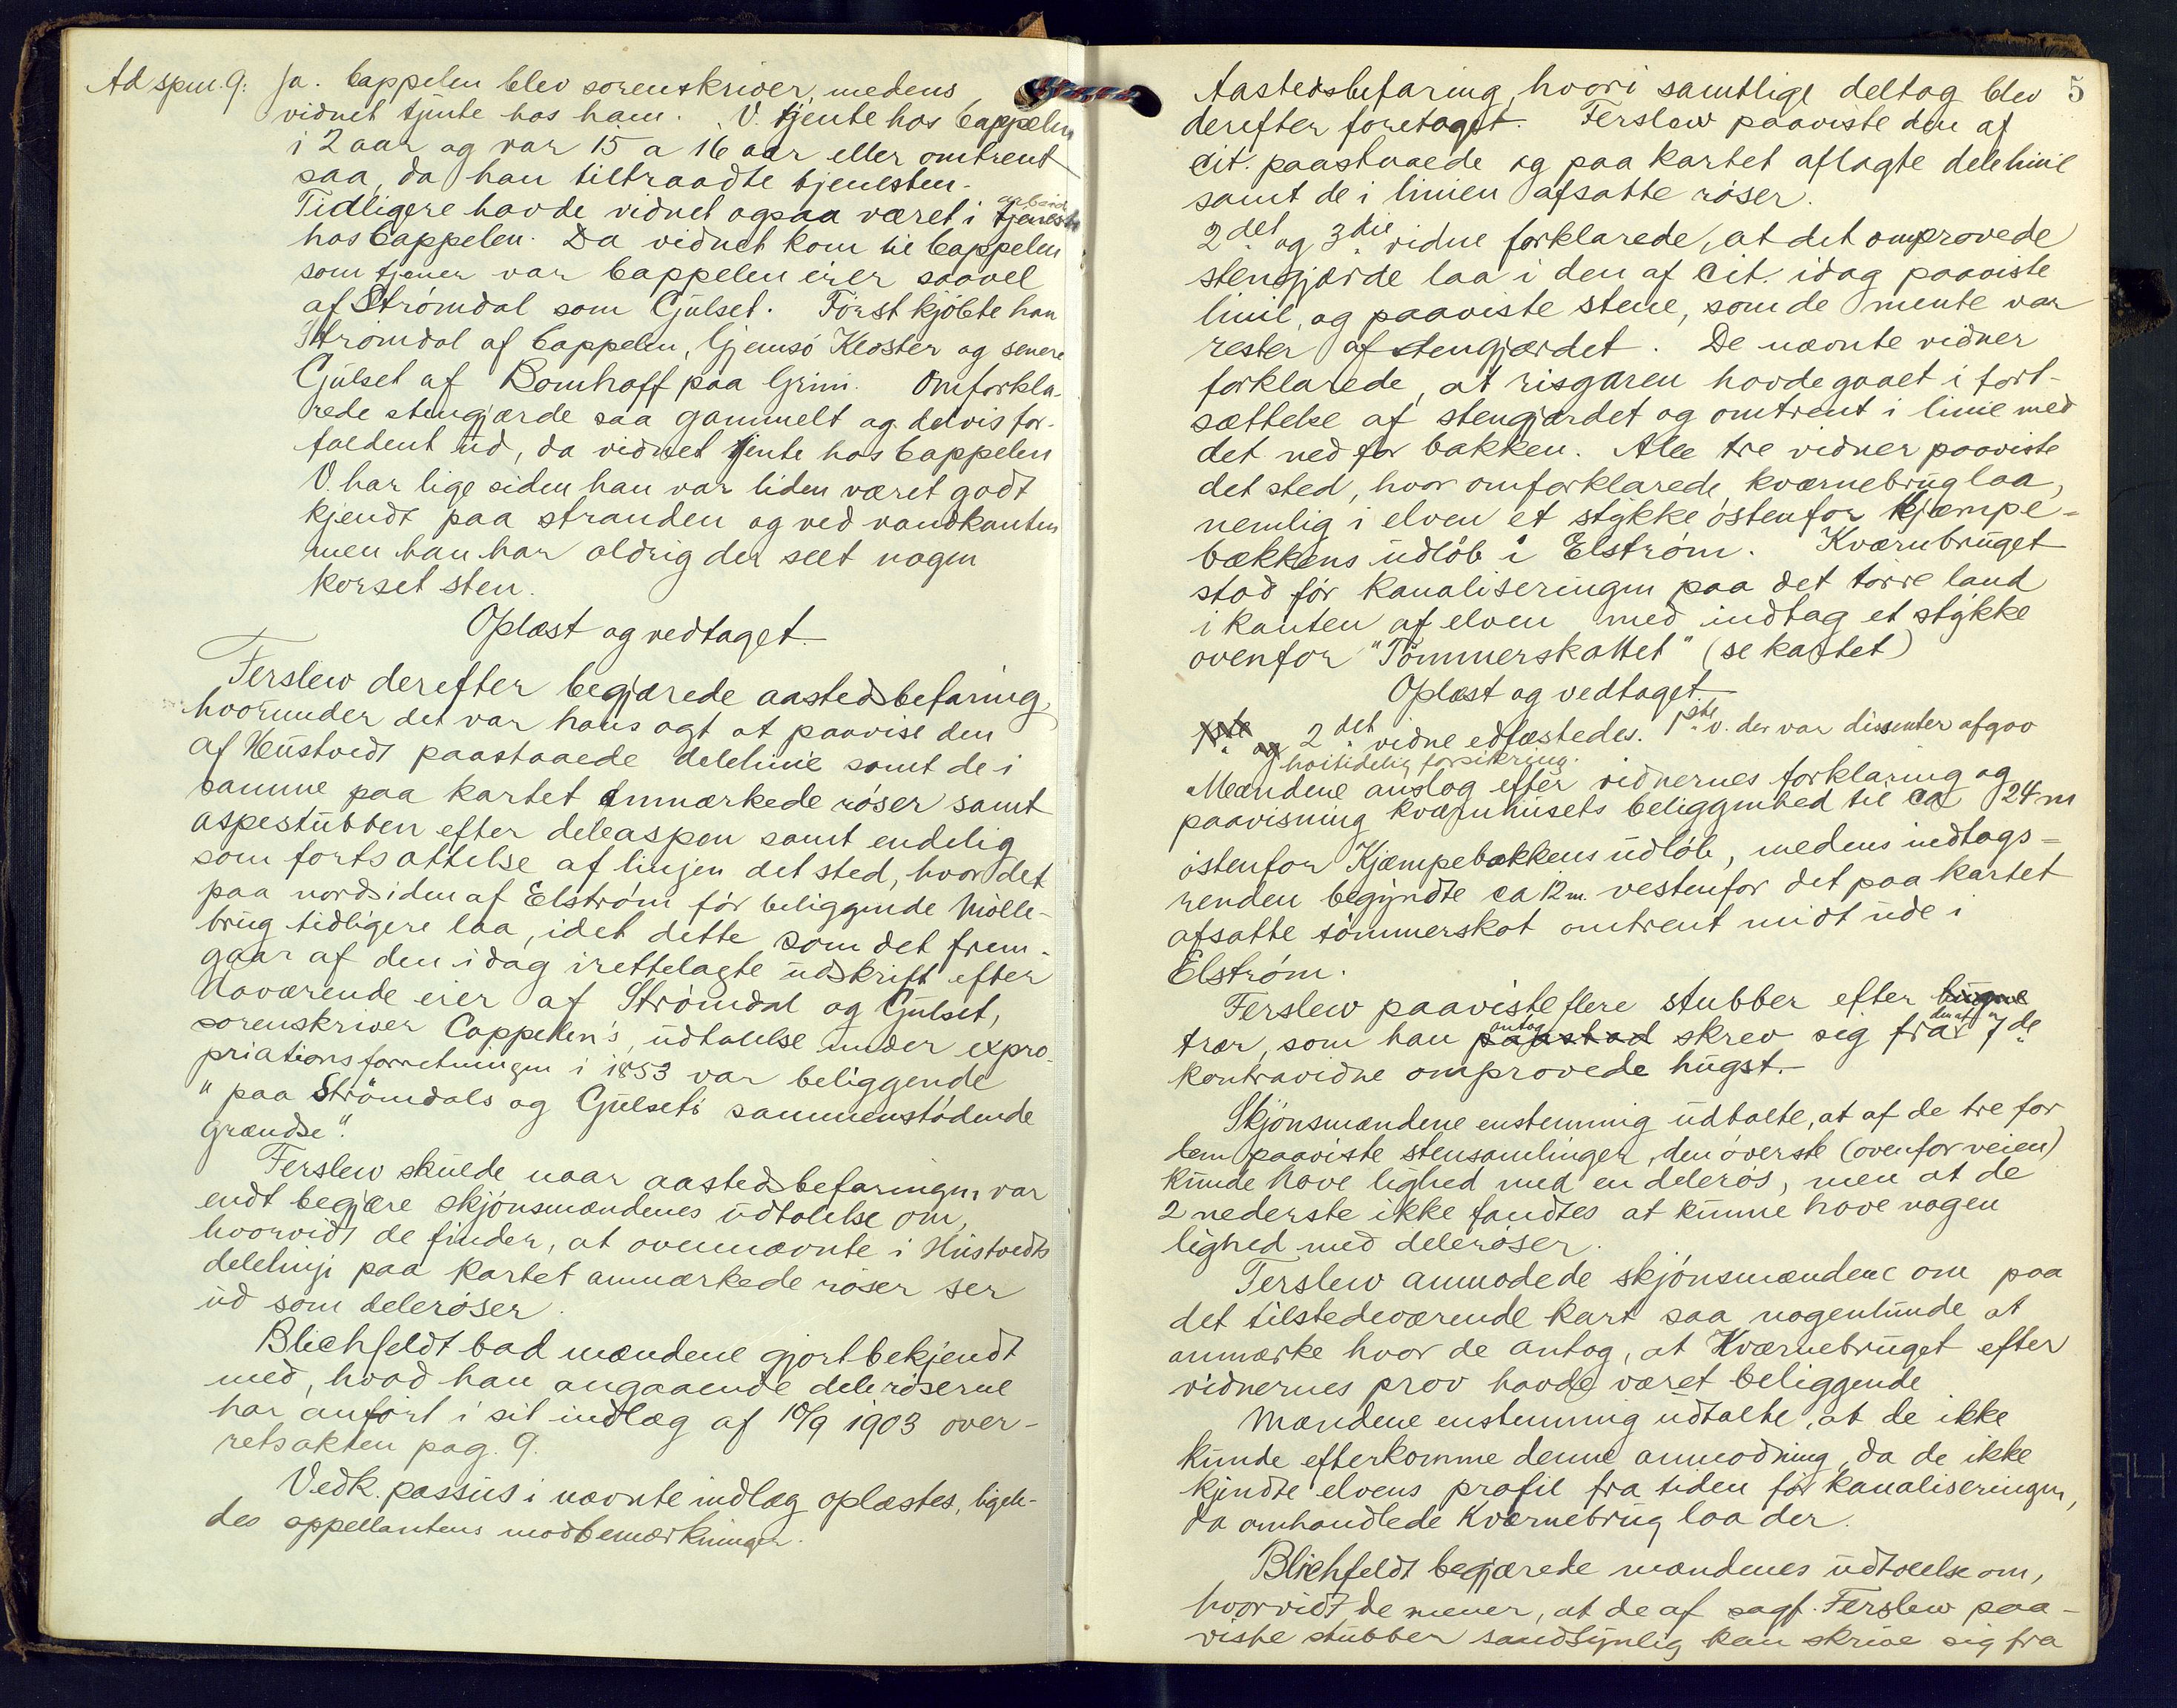 Ad spm. 9: Ja. Cappelen blev sorenskriver, medens
vidnet tjente hos ham. V. tjente hos Cappelen
i 2 aar og var 15 a 16 aar eller omtrent
saa, da han tiltraadte tjenesten.
Tidligere havde vidnet ogsaa været i arbeide
hos Cappelen. Da vidnet kom til Cappelen
som tjener var Cappelen eier saavel
af Strömdal som Gjulset. Först kjöbte han
Strömdal af Cappelen, Gjemsö Kloster og senere
Gjulset af Bomhoff paa Grini. Omforkla-
rede stengjærde saa gammelt og delvis for-
faldent ud, da vidnet tjente hos Cappelen
V. har lige siden han var liden været godt
kjendt paa stranden og ved vandkanten
men han har aldrig der seet nogen
korset sten.
Oplæst og vedtaget.
Ferslew derefter begjærede aastedsbefaring,
hvorunder det var hans agt at paavise den
af Hustvedt paastaaede delelinie samt de i
samme paa kartet anmærkede röser samt
aspestubben efter deleaspen samt endelig
som fortsættelse af linjen det sted, hvor det
paa nordsiden af Elström för beliggende Mölle-
brug tidligere laa, idet dette som det frem-
gaar af den idag irettelagte udskrift efter
Naværende eier af Strömdal og Gjulset,
sorenskriver Cappelen's, udtalelse under expro-
priationsforretningen i 1853 var beliggende
"paa Strömdals og Gjulsets sammenstödende
Grændse".
Ferslew skulde naar aastedsbefaringen var
endt begjære skjönsmændenes udtalelse om,
hvorvidt de finder, at ovennævnte i Hustvedts
delelinje paa kartet anmærkede röser ser
ud som deleröser.
Blichfeldt bad mændene gjort bekjendt
med, hvad han angaaende deleröserne
har anfört i sit indlæg af 10/9 1903 over-
retsakten pag. 9.
Vedk. passus i nævnte indlæg oplæstes, ligele-
des appellantens modbemærkninger.
5
Aastedsbefaring, hvori samtlige deltog blev
derefter foretaget. Ferslew paaviste den af
cit. paastaaede og paa kartet aflagte delelinie
samt de i linien afsatte röser.
2det og 3die vidne forklarede, at det omprovede
stengjærde laa i den af cit. idag paaviste
linie, og paaviste stene, som de mente var
rester af stengjærdet. De nævnte vidner
forklarede, at risgaren havde gaaet i fort-
sættelse af stengjærdet og omtrent i linie med
det ned for bakken. Alle tre vidner paaviste
det sted, hvor omforklarede kværnebrug laa,
nemlig i elven et stykke östenfor Kjæmpe-
bækkens udlöb i Elström. Kværnbruget
stod för kanaliseringen paa det törre land
i kanten af elven med indtag et stykke
ovenfor "Tömmerskattet" (se kartet)
Oplæst og vedtaget.
1ste og 2det vidne edfæstedes. 1ste v. der var dissenter afgav
høitidelig forsikring.
Mændene anslog efter vidnernes forklaring og
paavisning kværnhusets beliggenhed til ca 24 m
östenfor Kjæmpebækkens udlöb, medens indtags-
renden begyndte ca 12 m. vestenfor det paa kartet
afsatte tömmerskot omtrent midt ude i
Elström.
Ferslew paaviste flere stubber efter
trær, som han antog skrev sig fra den af 7de
kontravidne omprovede hugst.
Skjönsmændene enstemmig udtalte, at af de tre for
dem paaviste stensamlinger, den överste (ovenfor veien)
kunde have lighed med en delerös, men at de
2 nederste ikke fandtes at kunne have nogen
lighed med deleröser.
Ferslew anmodede skjönsmændene om paa
det tilstedeværende kart saa nogenlunde at
anmærke hvor de antog, at Kværnebruget efter
vidnernes prov havde været beliggende
Mændene enstemmig udtalte, at de ikke
kunde efterkomme denne anmodning, da de ikke
kjendte elvens profil fra tiden för kanaliseringen,
da omhandlede Kværnebrug laa der.
Blichfeldt begjærede mændenes udtalelse om,
hvorvidt de mener, at de af sagf. Ferslew paa-
viste stubber sandsynlig kan skrive sig fra